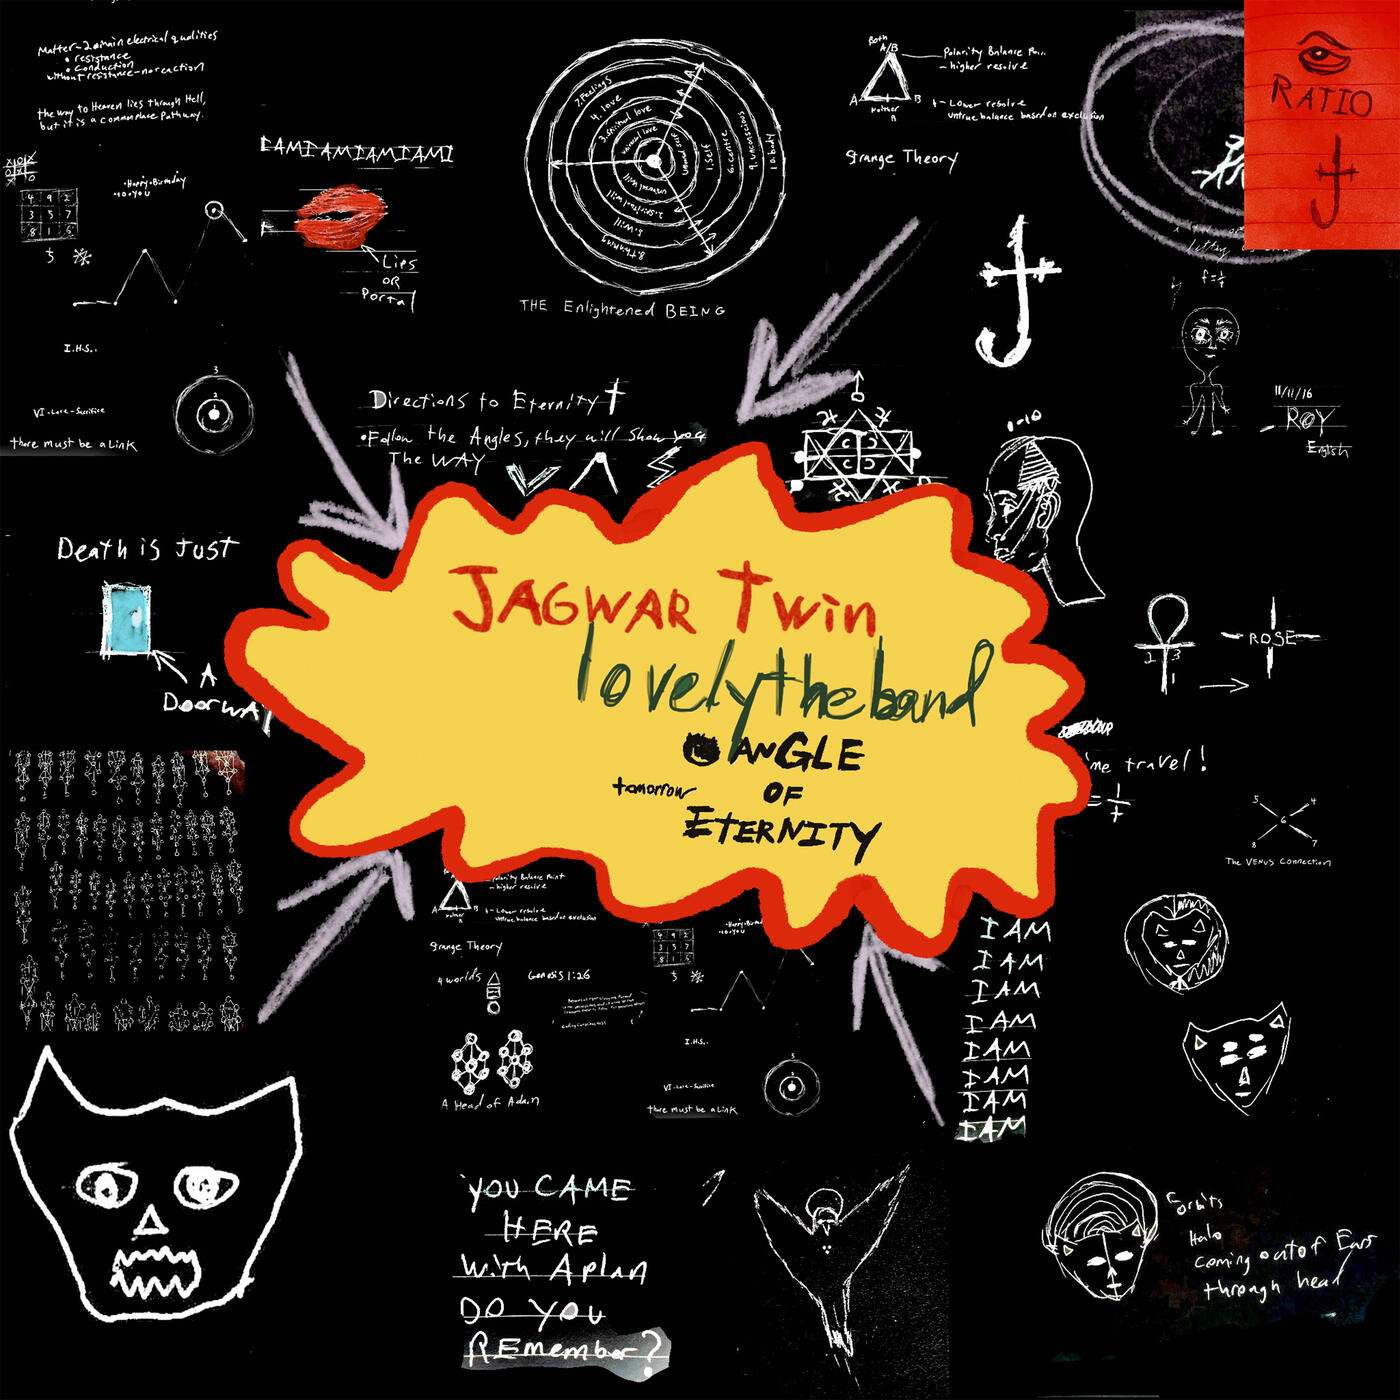 Matter-2 main electrical qualities
• resistance
• conduction
without resistance-no reaction
the way to Heaven lies through Hell,
but it is a commonplace pathway.
X O X
4 9 2
3 5 7
8 1 6
5
•Happy•Birthday
•to•you
IAMIAMIAMIAMIAMI
Lies
OR
Portal
I.H.S..
VI-Love-Sacrifice
there must be a Link
3
2
7.Feelings
4. love
3.spiritual love
1.Self
6.centre
9.unconscious
10.body
2.spiritual will
5.will
8.thinking
THE Enlightened BEING
Both
A/B
Polarity Balance Point
- higher resolve
A B
Neither
- Lower resolve
untrue balance based on exclusion
Strange Theory
RATIO
J
J
f=1/t
11/11/16
ROY
English
Directions to Eternity
•Follow the Angles, they will show you
The WAY
1-10
Death is Just
A
Doorway
JAGWAR Twin
lovelytheband
ANGLE
tomorrow OF
ETERNITY
2 3
1
ROSE
me travel!
= 1/t
5 4
6
8 7
The VENUS Connection
Polarity Balance Point
- higher resolve
A B
Neither
- Lower resolve
untrue balance based on exclusion
Strange Theory
4 worlds
Genesis 1:26
A Head of Adam
•Happy•Birthday
•to•you
4 9 2
3 5 7
8 1 6
5
I.H.S..
VI-Love-Sacrifice
there must be a Link
I AM
I AM
I AM
I AM
I AM
I AM
I AM
I AM
YOU CAME
HERE
With A plan
DO YOU
REmember?
5 orbits
Halo
coming out of Ears
through head